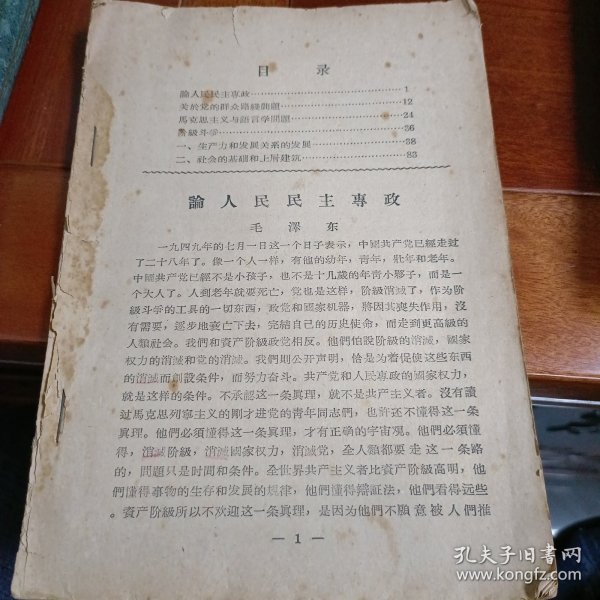 目 录
論人民民主專政 1
关於党的群众路綫問題 12
馬克思主义与語言学問題 24
阶級斗爭 36
一、生产力和发展关系的发展 38
二、社会的基础和上層建筑 83
論人民民主專政
毛澤东
一九四九年的七月一日这一个日子表示，中國共产党已經走过
了二十八年了。像一个人一样，有他的幼年，青年，壯年和老年。
中國共产党已經不是小孩子，也不是十几歲的年青小夥子，而是一
个大人了。人到老年就要死亡，党也是这样，阶級消滅了，作为阶
級斗爭的工具的一切东西，政党和國家机器，將因其喪失作用，沒
有需要，逐步地衰亡下去，完結自己的历史使命，而走到更高級的
人類社会。我們和資产阶級政党相反。他們怕說阶級的消滅，國家
权力的消滅和党的消滅。我們則公开声明，恰是为着促使这些东西
的消滅而創設条件，而努力奋斗。共产党和人民專政的國家权力，
就是这样的条件。不承認这一条眞理，就不是共产主義者。沒有讀
过馬克思列寧主义的剛才進党的青年同志們，也許还不懂得这一条
眞理。他們必須懂得这一条眞理，才有正确的宇宙观。他們必須懂
得，消滅阶級，消滅國家权力，消滅党，全人類都要走这一条路
的，問題只是时間和条件。全世界共产主义者比資产阶級高明，他
們懂得事物的生存和发展的規律，他們懂得辯証法，他們看得远些
。資产阶級所以不欢迎这一条眞理，是因为他們不願意被人們推
— 1 —
孔夫子旧书网
www.kongfz.com